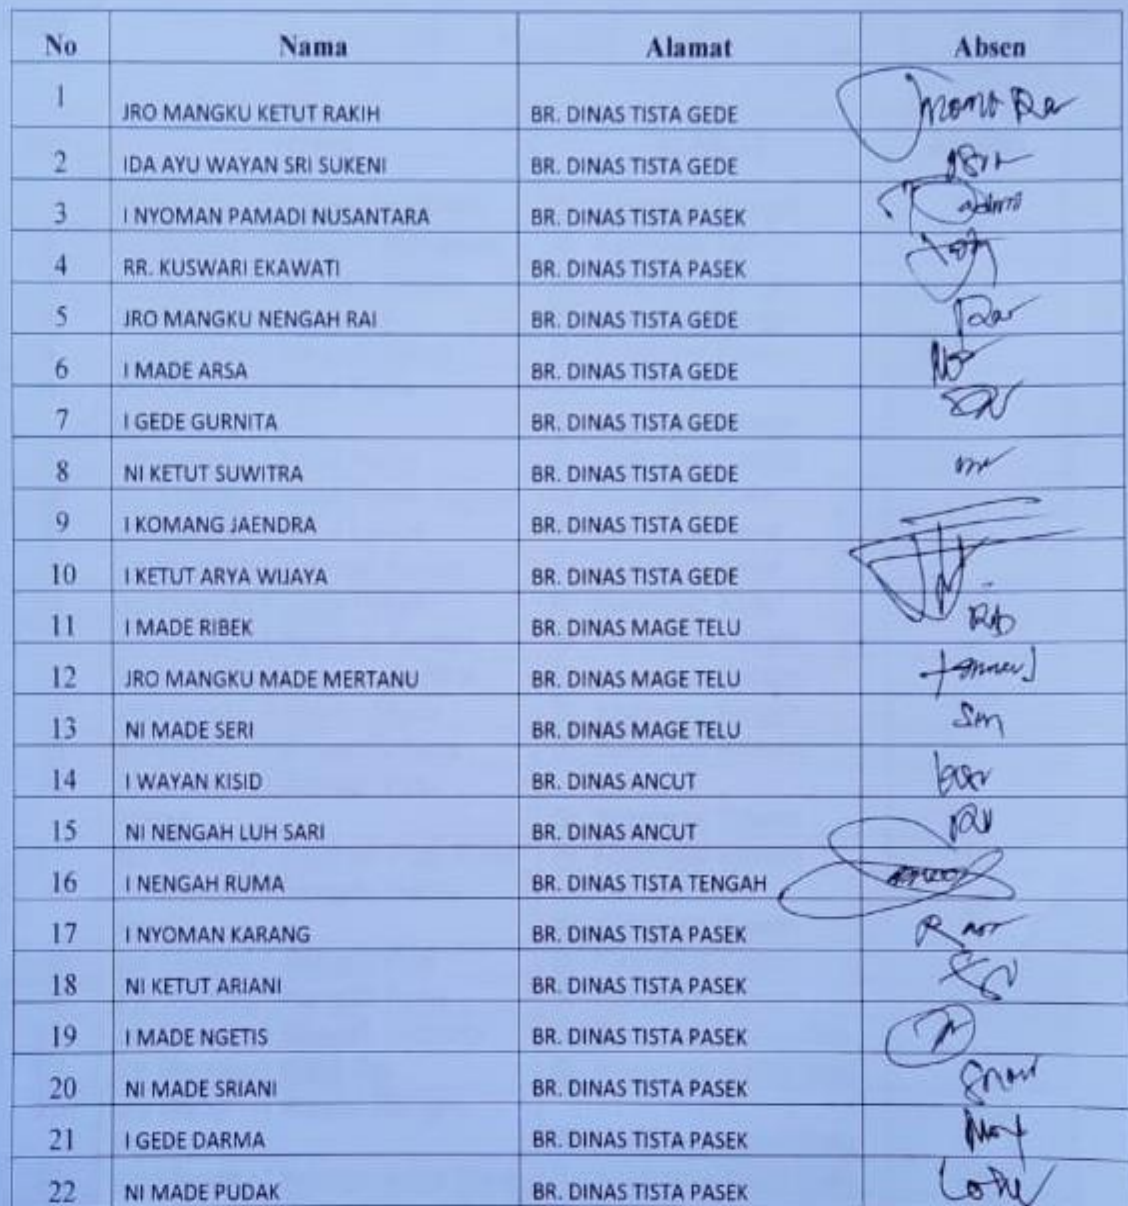 No Nama Alamat Absen
1 JRO MANGKU KETUT RAKIH BR. DINAS TISTA GEDE
2 IDA AYU WAYAN SRI SUKENI BR. DINAS TISTA GEDE
3 I NYOMAN PAMADI NUSANTARA BR. DINAS TISTA PASEK
4 RR. KUSWARI EKAWATI BR. DINAS TISTA PASEK
5 JRO MANGKU NENGAH RAI BR. DINAS TISTA GEDE
6 I MADE ARSA BR. DINAS TISTA GEDE
7 I GEDE GURNITA BR. DINAS TISTA GEDE
8 NI KETUT SUWITRA BR. DINAS TISTA GEDE
9 I KOMANG JAENDRA BR. DINAS TISTA GEDE
10 I KETUT ARYA WIJAYA BR. DINAS TISTA GEDE
11 I MADE RIBEK BR. DINAS MAGE TELU
12 JRO MANGKU MADE MERTANU BR. DINAS MAGE TELU
13 NI MADE SERI BR. DINAS MAGE TELU
14 I WAYAN KISID BR. DINAS ANCUT
15 NI NENGAH LUH SARI BR. DINAS ANCUT
16 I NENGAH RUMA BR. DINAS TISTA TENGAH
17 I NYOMAN KARANG BR. DINAS TISTA PASEK
18 NI KETUT ARIANI BR. DINAS TISTA PASEK
19 I MADE NGETIS BR. DINAS TISTA PASEK
20 NI MADE SRIANI BR. DINAS TISTA PASEK
21 I GEDE DARMA BR. DINAS TISTA PASEK
22 NI MADE PUDAK BR. DINAS TISTA PASEK